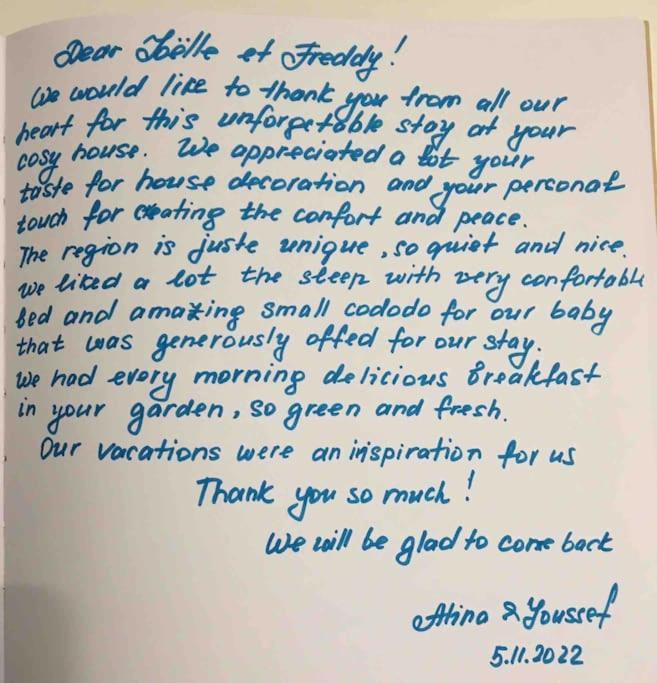 Dear Joëlle et Freddy!
We would like to thank you from all our
heart for this unforgetable stay at your
cosy house. We appreciated a lot your
taste for house decoration and your personal
touch for creating the confort and peace.
The region is juste unique, so quiet and nice.
We liked a lot the sleep with very confortable
bed and amazing small cododo for our baby
that was generously offed for our stay.
We had every morning delicious breakfast
in your garden, so green and fresh.
Our vacations were an inspiration for us
Thank you so much!
We will be glad to come back
Alina & Youssef
5.11.2022